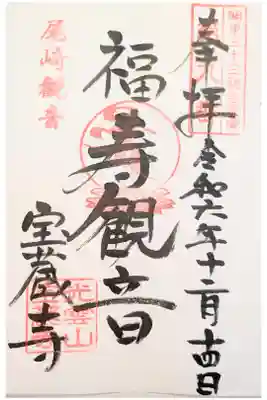 奉拝 令和六年十二月十四日
福寿観音
尾崎観音
宝蔵寺
光雲山